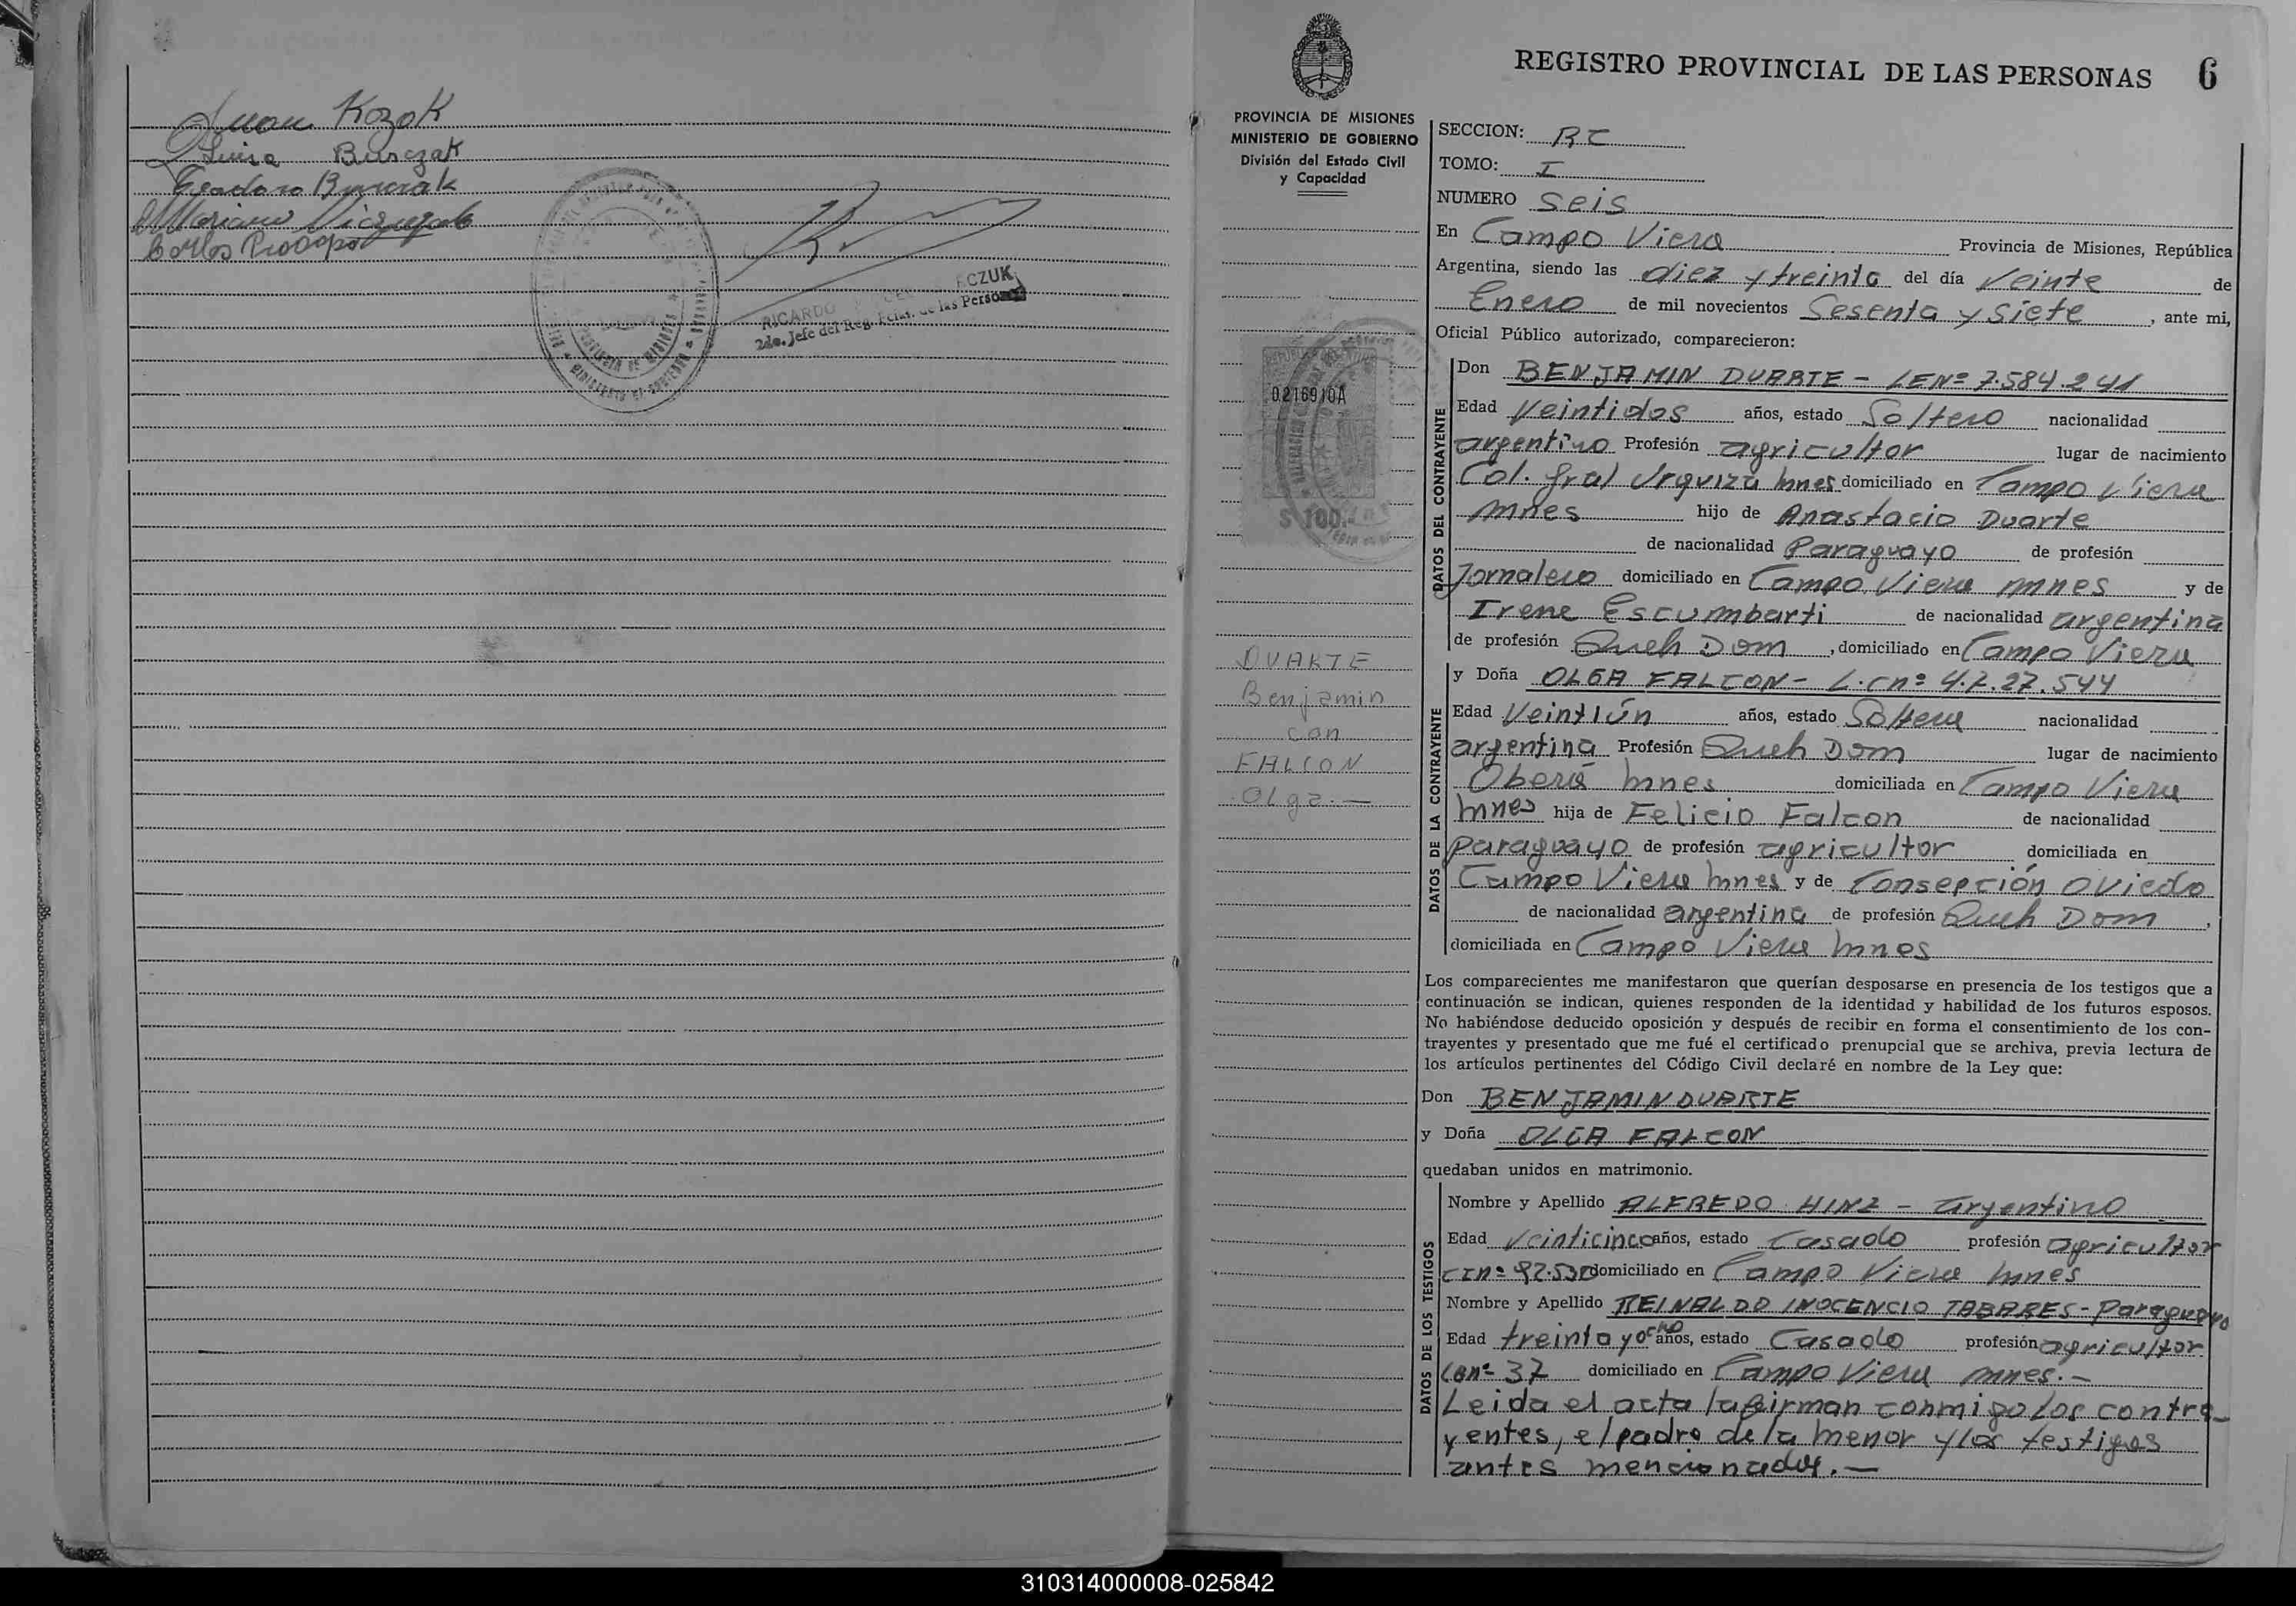 Juan Kozok
Luisa Burczak
Teodoro Burczak
Mariano
Carlos Procopo
RICARDO ECZUK
2do. Jefe del Reg. Pcial. de las Personas
PROVINCIA DE MISIONES
REGISTRO PROVINCIAL DE LAS PERSONAS 6
PROVINCIA DE MISIONES
MINISTERIO DE GOBIERNO
División del Estado Civil
y Capacidad
0216910A
$ 100.-
DUARTE
Benjamin
con
FALCON
Olga.—
SECCION: RC
TOMO: I
NUMERO Seis
En Campo Viera Provincia de Misiones, República
Argentina, siendo las diez y treinta del día Veinte de
Enero de mil novecientos Sesenta y Siete, ante mi,
Oficial Público autorizado, comparecieron:
DATOS DEL CONTRAYENTE
Don BENJAMIN DUARTE - LENº 7.584.241
Edad Veintidos años, estado Soltero nacionalidad
argentino Profesión agricultor lugar de nacimiento
Col. Gral Urquiza Mnes domiciliado en Campo Viera
Mnes hijo de Anastacio Duarte
de nacionalidad Paraguayo de profesión
Jornalero domiciliado en Campo Viera Mnes y de
Irene Escumbarti de nacionalidad argentina
de profesión Queh Dom, domiciliado en Campo Viera
DATOS DE LA CONTRAYENTE
y Doña OLGA FALCON - L.Cnº 4.7.27.544
Edad Veintiún años, estado Soltera nacionalidad
argentina Profesión Queh Dom lugar de nacimiento
Oberá Mnes domiciliada en Campo Viera
Mnes hija de Felicio Falcon de nacionalidad
paraguayo de profesión agricultor domiciliada en
Campo Viera Mnes y de Consepción Oviedo
de nacionalidad argentina de profesión Queh Dom,
domiciliada en Campo Viera Mnes
Los comparecientes me manifestaron que querían desposarse en presencia de los testigos que a
continuación se indican, quienes responden de la identidad y habilidad de los futuros esposos.
No habiéndose deducido oposición y después de recibir en forma el consentimiento de los con-
trayentes y presentado que me fué el certificado prenupcial que se archiva, previa lectura de
los artículos pertinentes del Código Civil declaré en nombre de la Ley que:
Don BENJAMIN DUARTE
y Doña OLGA FALCON
quedaban unidos en matrimonio.
DATOS DE LOS TESTIGOS
Nombre y Apellido ALFREDO HINZ - argentino
Edad Veinticinco años, estado Casado profesión agricultor
CInº 92.530 domiciliado en Campo Viera Mnes
Nombre y Apellido REINALDO INOCENCIO TABARES - Paraguayo
Edad treinta y ocho años, estado Casado profesión agricultor
37 domiciliado en Campo Viera Mnes.-
Leida el acta la firman conmigo los contra-
yentes, el padre de la menor y los testigos
antes mencionados.—
310314000008-025842